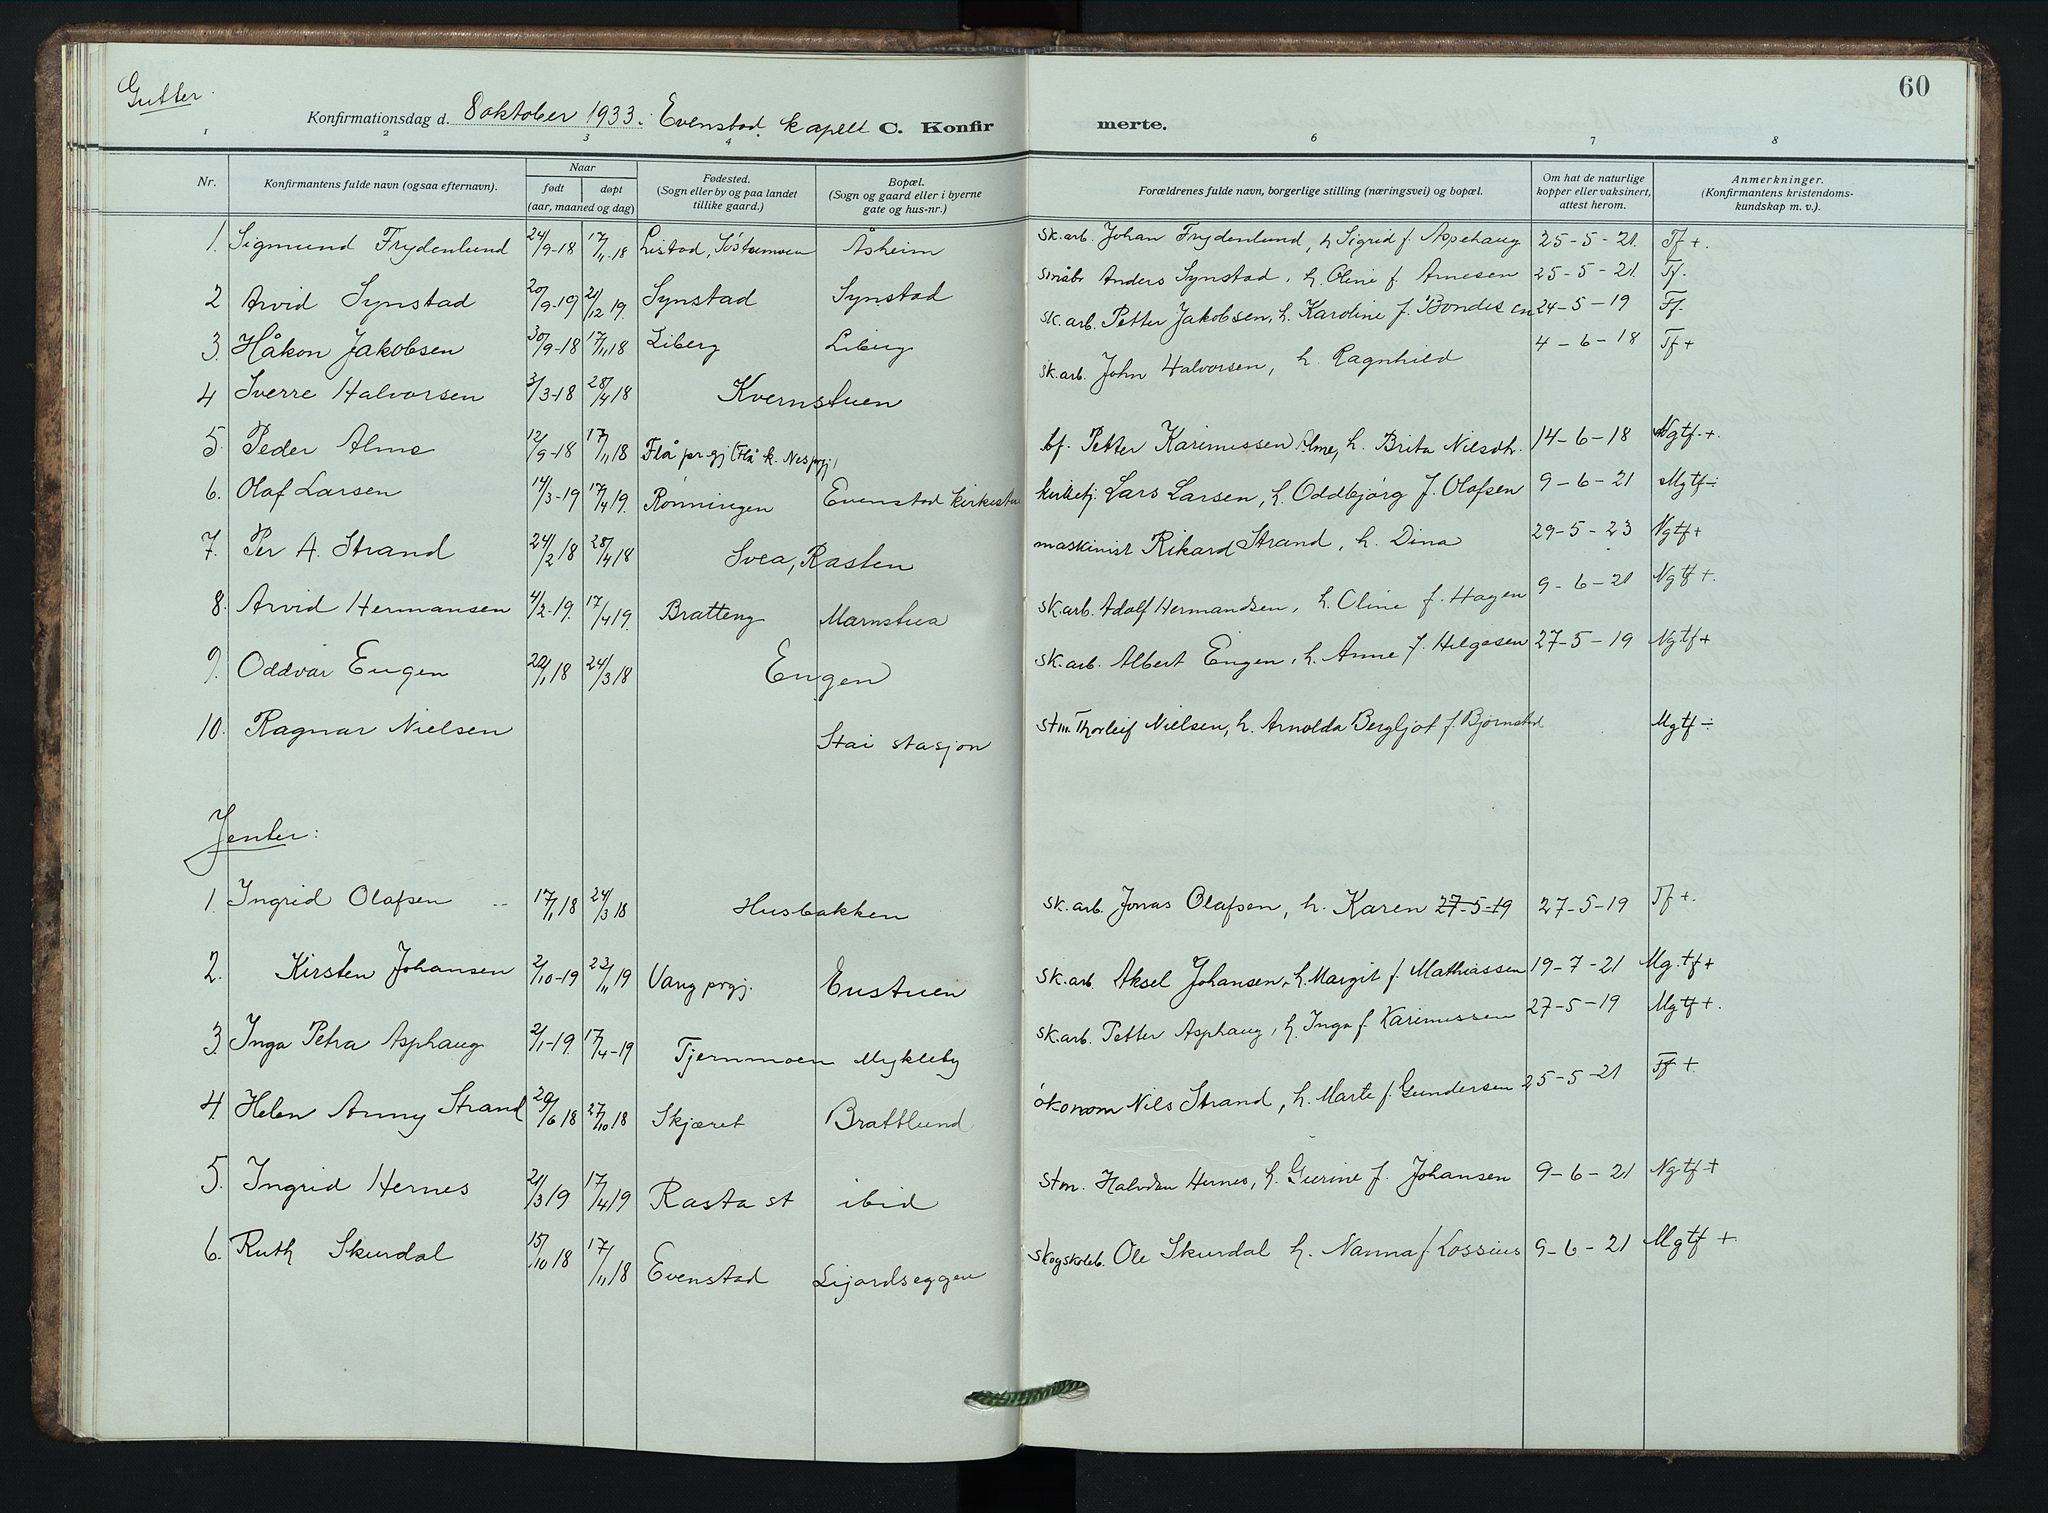 60
Gutter.
Konfirmationsdag d. 8 oktober 1933. Evenstad kapell C. Konfirmerte.
1 2 3 4 6 7 8
Nr. Konfirmantens fulde navn (ogsaa efternavn). Naar født døpt (aar, maaned og dag) Fødested. (Sogn eller by og paa landet tillike gaard.) Bopæl. (Sogn og gaard eller i byerne gate og hus-nr.) Forældrenes fulde navn, borgerlige stilling (næringsvei) og bopæl. Om hat de naturlige kopper eller vaksinert, attest herom. Anmerkninger. (Konfirmantens kristendomskundskap m. v.).
1. Sigmund Frydenlund 24/9-18 17/11-18 Listad, Åsheim sk.arb. Johan Frydenlund, h. Sigrid f. Aspehaug 25-5-21. Tf +.
2 Arvid Synstad 20/9-19 21/12 19. Synstad Synstad småbr Anders Synstad, h. Oline f. Arnesen 25-5-21. Tf.
3. Håkon Jakobsen 30/9-18 17/11 18 Liberg Liberg sk.arb. Petter Jakobsen, h. Karoline f. Bondesen 24-5-19 Tf.
4 Sverre Halvorsen 3/3-18 28/4 18 Kvernstuen sk.arb. John Halvorsen, h. Ragnhild 4-6-18 Tf +
5. Peder Alme 12/9-18 17/11 18 Flå prgj (Flå k. Nes prgj) bf. Petter Karinussen Alme, h. Brita Nilsdtr. 14-6-18 Ngtf +.
6. Olaf Larsen 14/3-19 17/4 19. Rønningen Evenstad kirkestue kirketj. Lars Larsen, h. Oddbjørg f. Olafsen 9-6-21 Mgtf ÷
7. Per A. Strand 24/2 18 28/4 18 Svea, Rasten maskinist Rikard Strand, h. Dina 29-5-23 Ngtf +
8. Arvid Hermansen 4/2-19. 17/4 19. Bratteng Marnstua sk.arb. Adolf Hermandsen, h. Oline f. Hagen 9-6-21 Ngtf +.
9. Oddvar Engen 22/1 18 24/3 18 Engen sk.arb. Albert Engen, h. Anne f. Helgesen 27-5-19 Ngtf +
10. Ragnar Nielsen Stai stasjon stm. Thorleif Nielsen, h. Arnolda Bergljot f. Bjørnstad Mgtf ÷
Jenter:
1. Ingrid Olafsen 17/1 18 24/3 18 Husbakken sk.arb. Jonas Olafsen, h. Karen 27-5-19 27-5-19 Tf +.
2. Kirsten Johansen 2/10-19 23/11 19 Vang prgj. Enstuen sk.arb. Aksel Johansen, h. Margit f. Mathiassen 19-7-21 Mg.tf +
3. Inga Petra Asphaug 2/1-19. 17/4-19 Tjernmoen Mykleby sk.arb. Petter Asphaug, h. Inga f. Karinussen 27-5-19 Mgtf +.
4. Helen Anny Strand 20/6 18 27/10 18 Skjæret Brattlund økonom Nils Strand, h. Marte f. Gundersen 25-5-21 Tf +
5. Ingrid Hernes 21/3 19 17/4 19 Rasta st ibid stm. Halvdan Hernes, h. Gurine f. Johansen 9-6-21 Ngtf +
6. Ruth Skurdal 15/10 18 17/11 18 Evenstad Lijordseggen skogskoleb. Ole Skurdal h. Nanna f. Lossius 9-6-21 Mgtf +